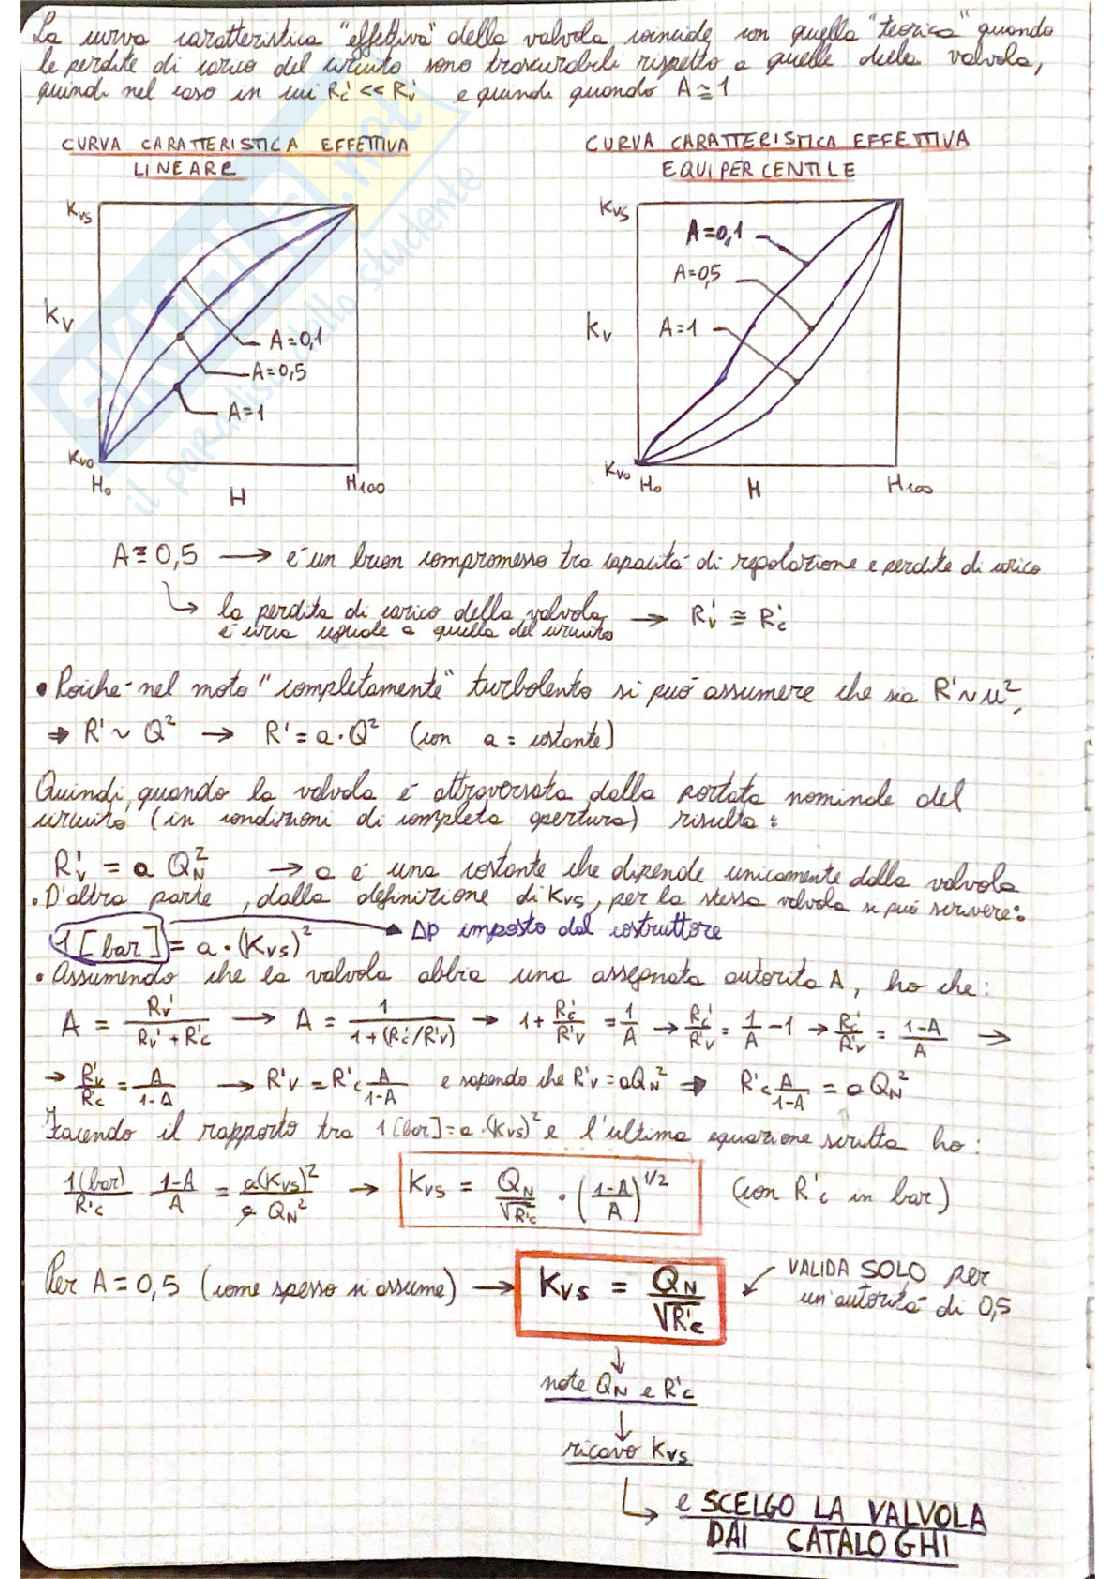 La curva caratteristica "effettiva" della valvola coincide con quella "teorica" quando
le perdite di carico del circuito sono trascurabili rispetto a quelle della valvola,
quindi nel caso in cui R'c << R'v e quindi quando A ≅ 1
CURVA CARATTERISTICA EFFETTIVA
LINEARE
CURVA CARATTERISTICA EFFETTIVA
EQUIPERCENTILE
Kvs
Kv
A=0,1
A=0,5
A=1
Kvo
Ho
H
H100
Kvs
A=0,1
A=0,5
Kv
A=1
Kvo
Ho
H
H100
A ≅ 0,5 → è un buon compromesso tra capacità di regolazione e perdite di carico
↳ la perdita di carico della valvola
è circa uguale a quella del circuito → R'v ≅ R'c
• Poiché nel moto "completamente" turbolento si può assumere che sia R' ~ u²,
⇒ R' ~ Q² → R' = a · Q² (con a = costante)
Quindi, quando la valvola è attraversata dalla portata nominale del
circuito (in condizioni di completa apertura) risulta:
R'v = a QN² → a è una costante che dipende unicamente dalla valvola
• D'altra parte, dalla definizione di Kvs, per la stessa valvola si può scrivere:
1 [bar] = a · (Kvs)² → Δp imposto dal costruttore
• Assumendo che la valvola abbia una assegnata autorità A, ho che:
A = R'v / (R'v + R'c) → A = 1 / (1+(R'c/R'v)) → 1 + R'c/R'v = 1/A → R'c/R'v = 1/A - 1 → R'c/R'v = (1-A)/A →
→ R'v/R'c = A/(1-A) → R'v = R'c A/(1-A) e sapendo che R'v = aQN² ⇒ R'c A/(1-A) = a QN²
Facendo il rapporto tra 1[bar] = a·(Kvs)² e l'ultima equazione scritta ho:
1(bar)/R'c (1-A)/A = a(Kvs)²/a QN² → Kvs = QN/√R'c · ((1-A)/A)^1/2 (con R'c in bar)
Per A = 0,5 (come spesso si assume) → Kvs = QN/√R'c ↙ VALIDA SOLO per
un'autorità di 0,5
↓
note QN e R'c
↓
ricavo Kvs
↳ e SCELGO LA VALVOLA
DAI CATALOGHI